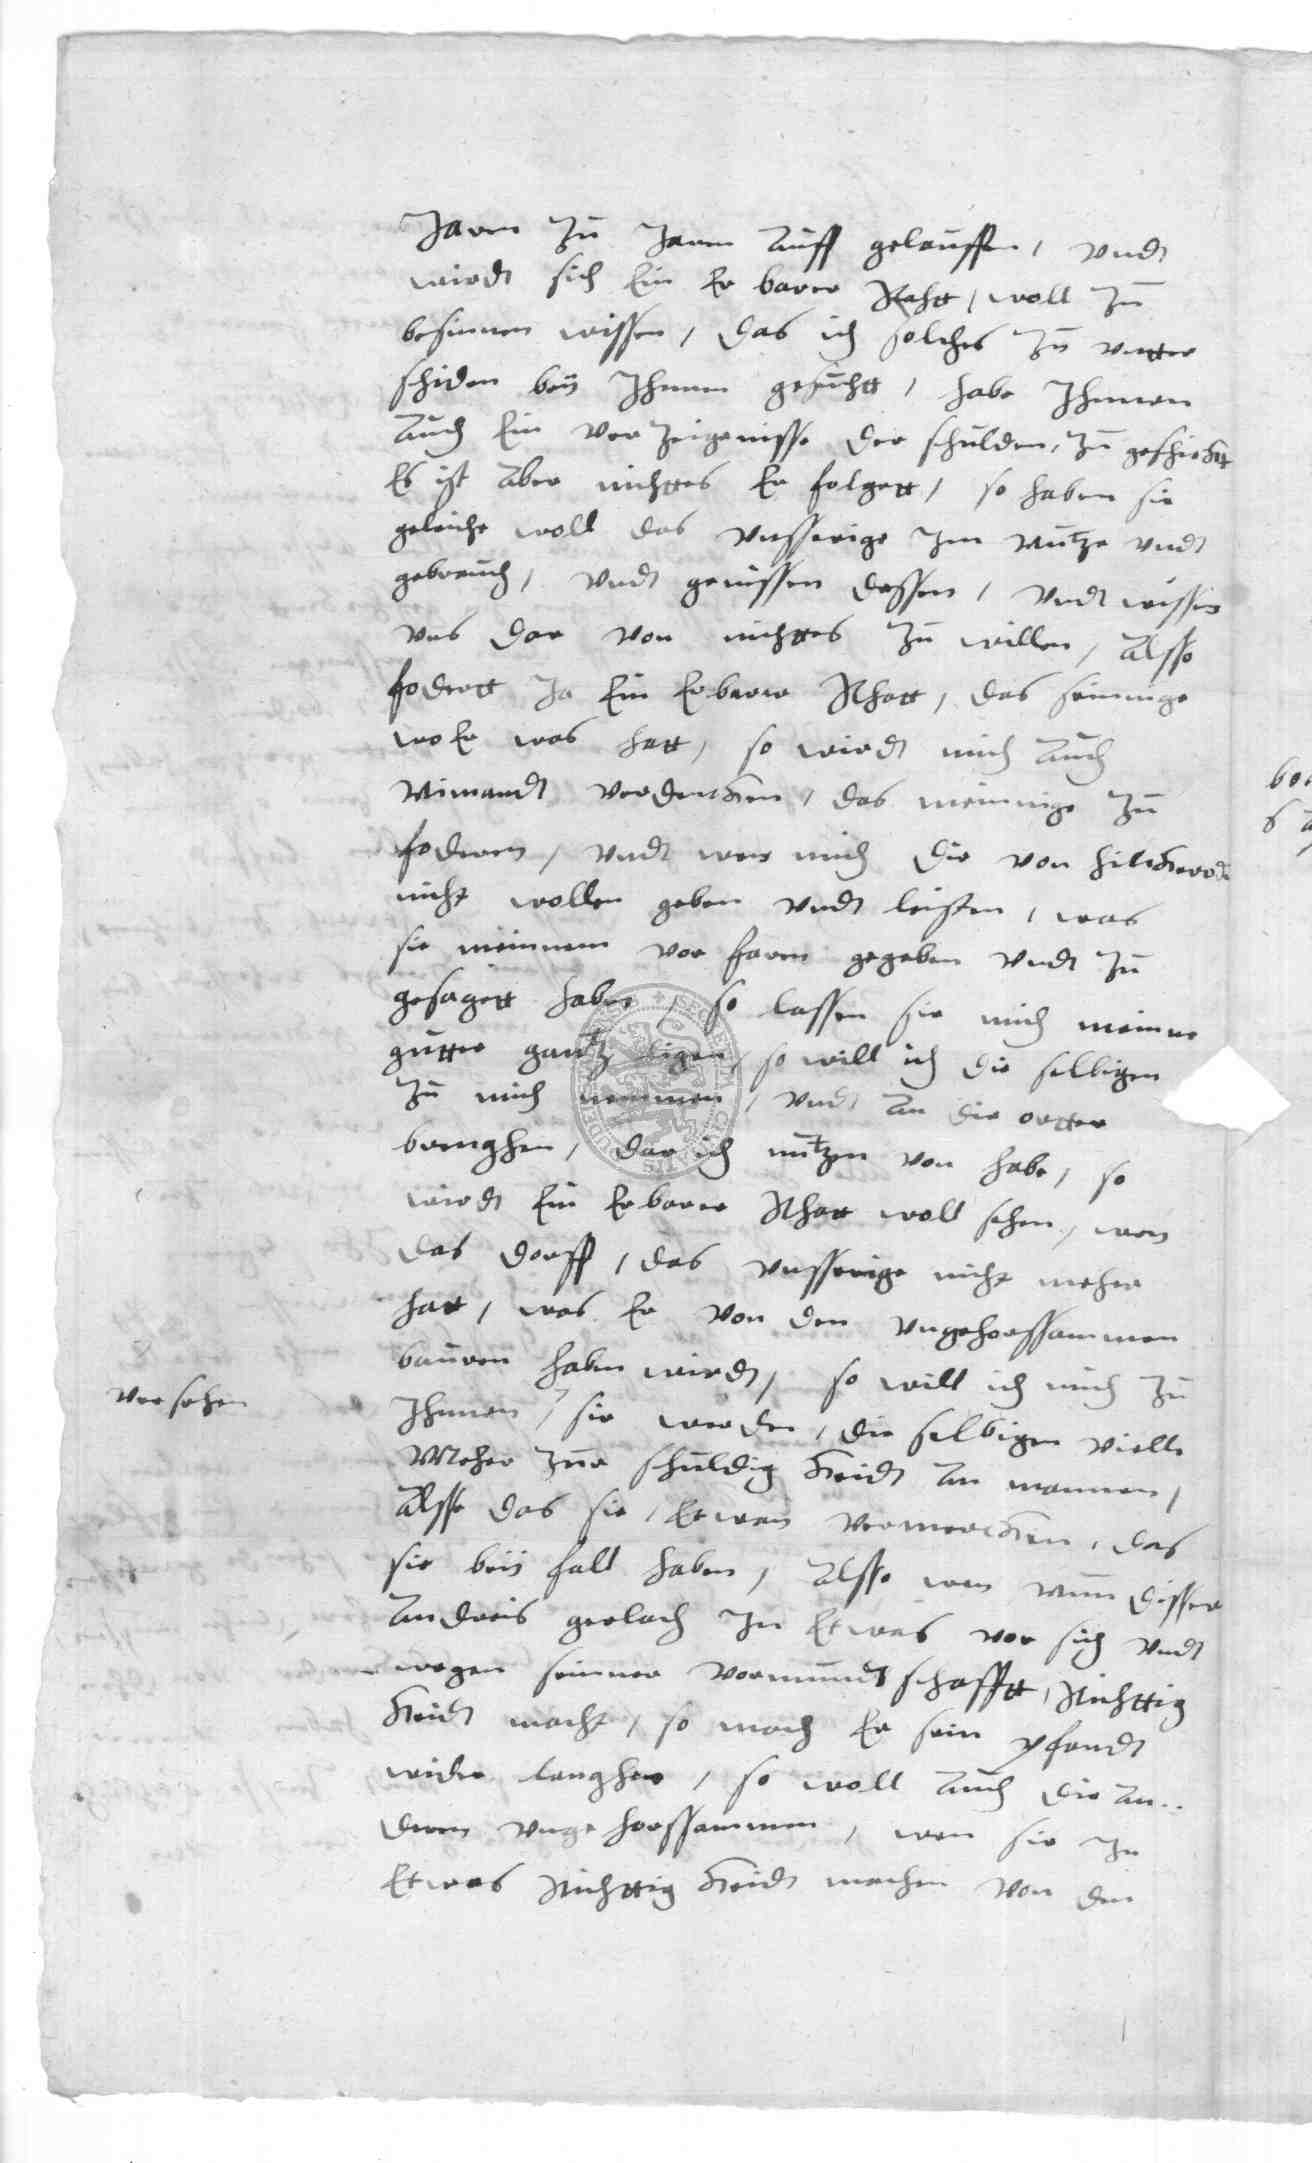 Jaren zu Jaren auff gelauffen, undt
wirdt sich Ein Er barer Rahtt, woll zu
besinnen wissen, das ich solches zu untter
schiden beÿ Ihnnen gesuchtt, habe Ihnnen
auch Ein vor zeigenisse der schulden, zu geschicktt
Es ist aber nichttes Er folgett, so haben sie
geleiche woll das unsserige Im nutze undt
gebrauch, undt genissen dessen, undt wissen
uns dar von nichttes zu willen, alsso
fodertt Ja Ein Erbarer Rhatt, das seinnige
wo Er was hatt, so wirdt mich auch
Nimandt verdencken, das meinnige zu
foderen, undt wen mich die von hilckerode
nicht wollen geben undt leisten, was
sie meinnem vor faren gegeben undt zu
gesagett haben, so lassen sie mich meinne
gutter gantz ligen, so will ich die selbigen
zu mich nemmen, undt an die ortter
brenghen, dar ich nutzen von habe, so
wirdt Ein Erbarer Rhatt woll sehen, wen
das dorff, das unsserige nicht meher
hatt, was Er von den ungehorssammen
bauren haben wirdt, so will ich mich zu
ver sehen
Ihnnen, sie werden, die selbigen viell
Meher zur schuldig keidt an mannen,
alsse das sie, Etwan vermercken, das
sie beÿ fall haben, alsso wen nun disser
Andreis gerlach In Etwas vor sich undt
wegen seinner vormundt schafftt, Richttig
keidt macht, so mach Er sein pfandt
wider langhen, so woll auch die an..
deren unge horssammen, wen sie In
Etwas Richttig keidt machen von den